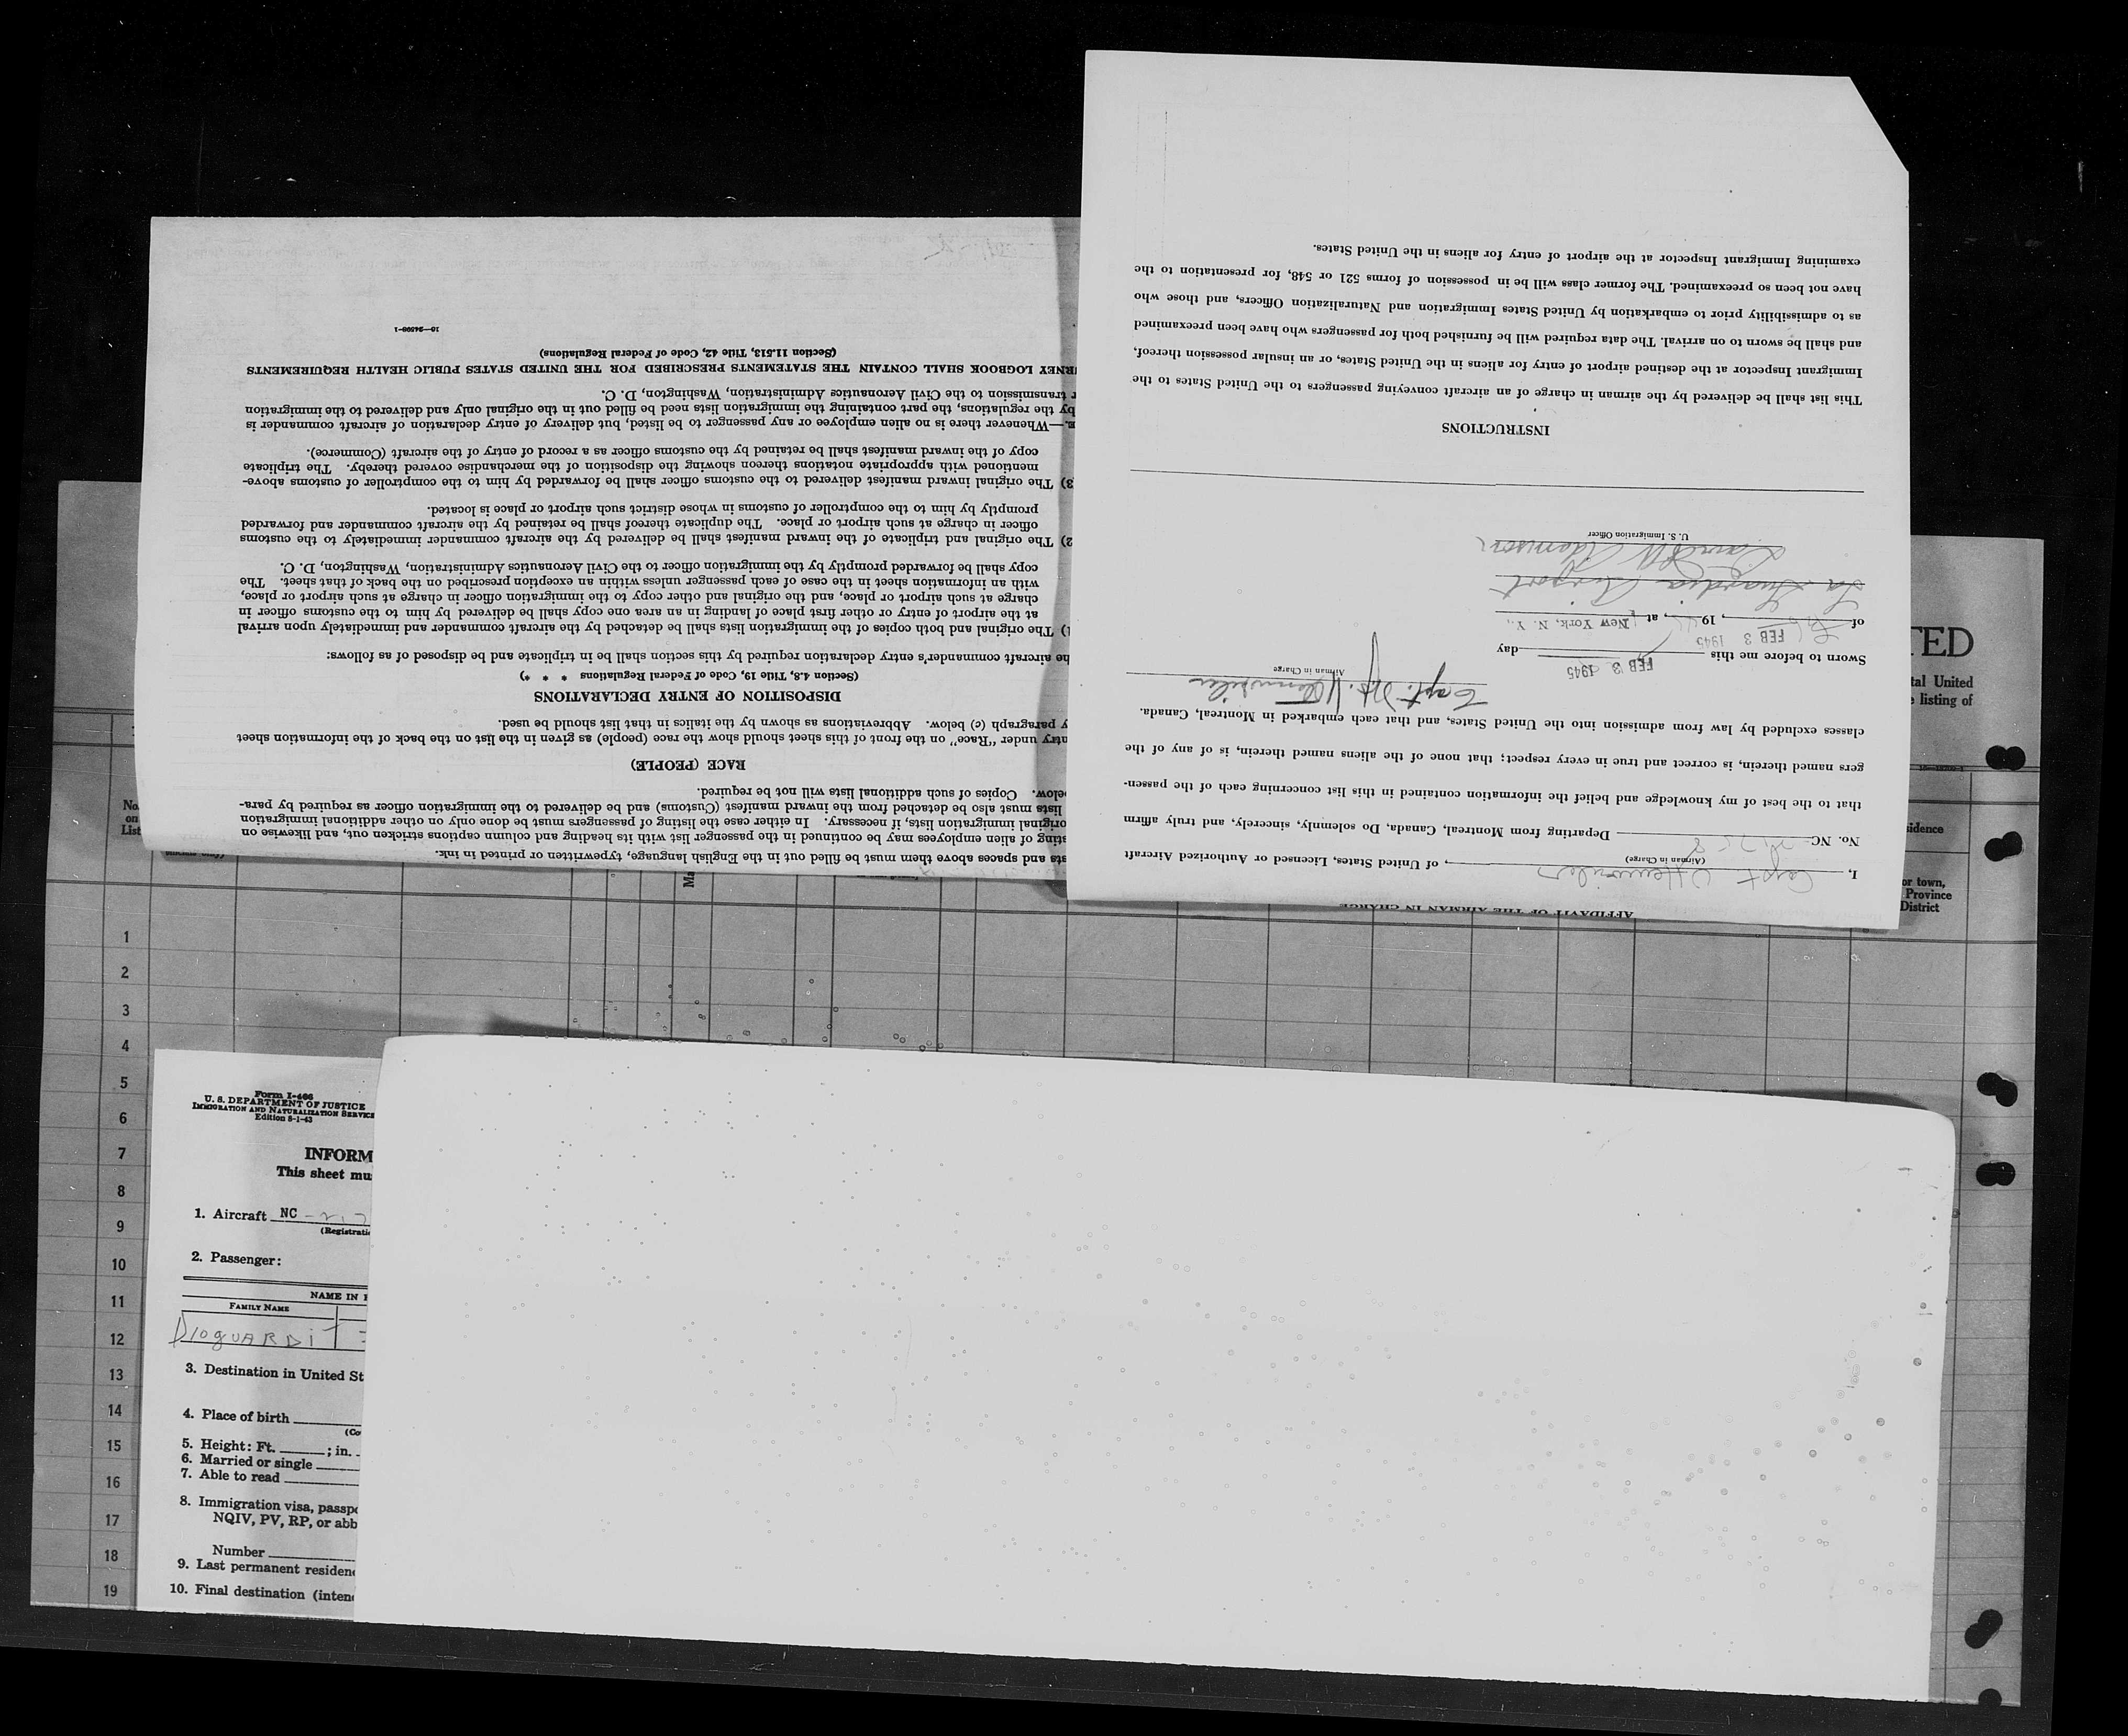 AFFIDAVIT OF THE AIRMAN IN CHARGE
I, Capt , of United States, Licensed or Authorized Aircraft
(Airman in Charge)
No. NC Departing from Montreal, Canada, Do solemnly, sincerely, and truly affirm
that to the best of my knowledge and belief the information contained in this list concerning each of the passen-
gers named therein, is correct and true in every respect; that none of the aliens named therein, is of any of the
classes excluded by law from admission into the United States, and that each embarked in Montreal, Canada.
Capt.
Airman in Charge
FEB 3 1945
Sworn to before me this day
FEB 3 1945
of , 19 , at New York, N. Y.,
La Guardia Airport
Adamson
U. S. Immigration Officer
INSTRUCTIONS
This list shall be delivered by the airman in charge of an aircraft conveying passengers to the United States to the
Immigrant Inspector at the destined airport of entry for aliens in the United States, or an insular possession thereof,
and shall be sworn to on arrival. The data required will be furnished both for passengers who have been preexamined
as to admissibility prior to embarkation by United States Immigration and Naturalization Officers, and those who
have not been so preexamined. The former class will be in possession of forms 521 or 548, for presentation to the
examining Immigrant Inspector at the airport of entry for aliens in the United States.
sts and spaces above them must be filled out in the English language, typewritten or printed in ink.
sting of alien employees may be continued in the passenger list with its heading and column captions stricken out, and likewise on
original immigration lists, if necessary. In either case the listing of passengers must be done only on other additional immigration
lists must also be detached from the inward manifest (Customs) and be delivered to the immigration officer as required by para-
below. Copies of such additional lists will not be required.
RACE (PEOPLE)
ntry under "Race" on the front of this sheet should show the race (people) as given in the list on the back of the information sheet
y paragraph (c) below. Abbreviations as shown by the italics in that list should be used.
DISPOSITION OF ENTRY DECLARATIONS
(Section 4.8, Title 19, Code of Federal Regulations * * *)
he aircraft commander's entry declaration required by this section shall be in triplicate and be disposed of as follows:
1) The original and both copies of the immigration lists shall be detached by the aircraft commander and immediately upon arrival
at the airport of entry or other first place of landing in an area one copy shall be delivered by him to the customs officer in
charge at such airport or place, and the original and other copy to the immigration officer in charge at such airport or place,
with an information sheet in the case of each passenger unless within an exception prescribed on the back of that sheet. The
copy shall be forwarded promptly by the immigration officer to the Civil Aeronautics Administration, Washington, D. C.
2) The original and triplicate of the inward manifest shall be delivered by the aircraft commander immediately to the customs
officer in charge at such airport or place. The duplicate thereof shall be retained by the aircraft commander and forwarded
promptly by him to the comptroller of customs in whose district such airport or place is located.
3) The original inward manifest delivered to the customs officer shall be forwarded by him to the comptroller of customs above-
mentioned with appropriate notations thereon showing the disposition of the merchandise covered thereby. The triplicate
copy of the inward manifest shall be retained by the customs officer as a record of entry of the aircraft (Commerce).
E.—Whenever there is no alien employee or any passenger to be listed, but delivery of entry declaration of aircraft commander is
by the regulations, the part containing the immigration lists need be filled out in the original only and delivered to the immigration
r transmission to the Civil Aeronautics Administration, Washington, D. C.
RNEY LOGBOOK SHALL CONTAIN THE STATEMENTS PRESCRIBED FOR THE UNITED STATES PUBLIC HEALTH REQUIREMENTS
(Section 11.513, Title 42, Code of Federal Regulations)
TED
tal United
e listing of
No.
on
List
Ma
sidence
or town,
Province
District
1
2
3
4
5
6
7
8
9
10
11
12
13
14
15
16
17
18
19
Form I-466
U. S. DEPARTMENT OF JUSTICE
IMMIGRATION AND NATURALIZATION SERVICE
Edition 5-1-43
INFORM
This sheet mu
1. Aircraft NC
(Registrati
2. Passenger:
NAME IN F
FAMILY NAME
DioguARDi
3. Destination in United St
4. Place of birth
(Co
5. Height: Ft. ; in.
6. Married or single
7. Able to read
8. Immigration visa, passpo
NQIV, PV, RP, or abb
Number
9. Last permanent residen
10. Final destination (inten